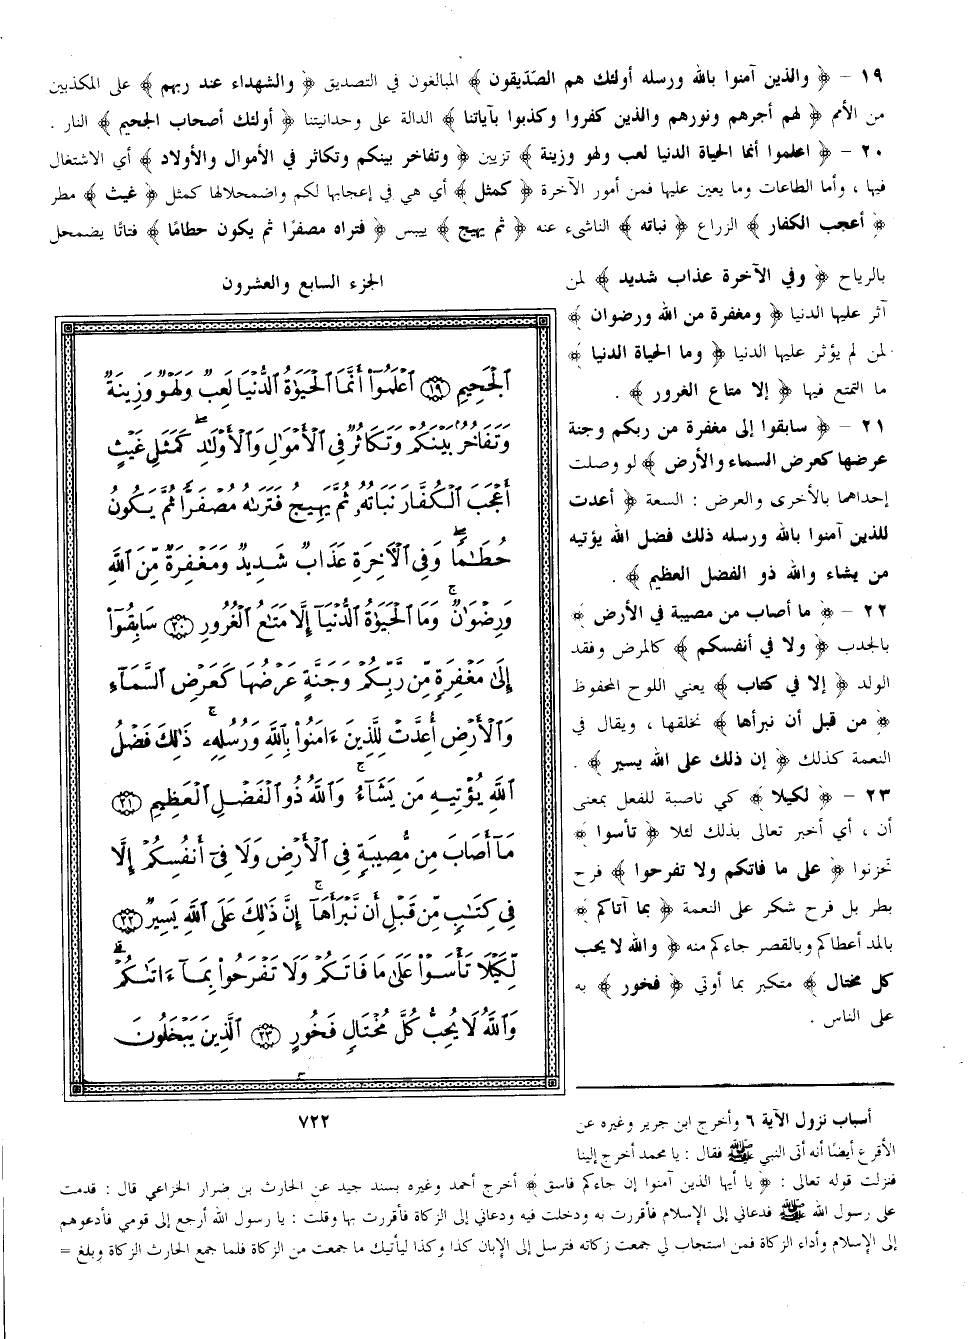 ١٩ - ﴿ والذين آمنوا بالله ورسله أولئك هم الصّدّيقون ﴾ المبالغون في التصديق ﴿ والشهداء عند ربهم ﴾ على المكذبين
من الأمم ﴿ لهم أجرهم ونورهم والذين كفروا وكذبوا بآياتنا ﴾ الدالة على وحدانيتنا ﴿ أولئك أصحاب الجحيم ﴾ النار .
٢٠ - ﴿ اعلموا أنما الحياة الدنيا لعب ولهو وزينة ﴾ تزيين ﴿ وتفاخر بينكم وتكاثر في الأموال والأولاد ﴾ أي الاشتغال
فيها ، وأما الطاعات وما يعين عليها فمن أمور الآخرة ﴿ كمثل ﴾ أي هي في إعجابها لكم واضمحلالها كمثل ﴿ غيث ﴾ مطر
﴿ أعجب الكفار ﴾ الزراع ﴿ نباته ﴾ الناشىء عنه ﴿ ثم يهيج ﴾ ييبس ﴿ فتراه مصفرًا ثم يكون حطامًا ﴾ فتاتًا يضمحل
بالرياح ﴿ وفي الآخرة عذاب شديد ﴾ لمن
آثر عليها الدنيا ﴿ ومغفرة من الله ورضوان ﴾
لمن لم يؤثر عليها الدنيا ﴿ وما الحياة الدنيا ﴾
ما التمتع فيها ﴿ إلا متاع الغرور ﴾ .
٢١ - ﴿ سابقوا إلى مغفرة من ربكم وجنة
عرضها كعرض السماء والأرض ﴾ لو وصلت
إحداهما بالأخرى والعرض : السعة ﴿ أعدت
للذين آمنوا بالله ورسله ذلك فضل الله يؤتيه
من يشاء والله ذو الفضل العظيم ﴾ .
٢٢ - ﴿ ما أصاب من مصيبة في الأرض ﴾
بالجدب ﴿ ولا في أنفسكم ﴾ كالمرض وفقد
الولد ﴿ إلا في كتاب ﴾ يعني اللوح المحفوظ
﴿ من قبل أن نبرأها ﴾ نخلقها ، ويقال في
النعمة كذلك ﴿ إن ذلك على الله يسير ﴾ .
٢٣ - ﴿ لكيلا ﴾ كي ناصبة للفعل بمعنى
أن ، أي أخبر تعالى بذلك لئلا ﴿ تأسوا ﴾
تحزنوا ﴿ على ما فاتكم ولا تفرحوا ﴾ فرح
بطر بل فرح شكر على النعمة ﴿ بما آتاكم ﴾
بالمد أعطاكم وبالقصر جاءكم منه ﴿ والله لا يحب
كل مختال ﴾ متكبر بما أوتي ﴿ فخور ﴾ به
على الناس .
الجزء السابع والعشرون
ٱلْجَحِيمِ ﴿١٩﴾ ٱعْلَمُوٓا۟ أَنَّمَا ٱلْحَيَوٰةُ ٱلدُّنْيَا لَعِبٌ وَلَهْوٌ وَزِينَةٌ
وَتَفَاخُرٌۢ بَيْنَكُمْ وَتَكَاثُرٌ فِى ٱلْأَمْوَٰلِ وَٱلْأَوْلَٰدِ ۖ كَمَثَلِ غَيْثٍ
أَعْجَبَ ٱلْكُفَّارَ نَبَاتُهُۥ ثُمَّ يَهِيجُ فَتَرَىٰهُ مُصْفَرًّا ثُمَّ يَكُونُ
حُطَٰمًا ۖ وَفِى ٱلْآخِرَةِ عَذَابٌ شَدِيدٌ وَمَغْفِرَةٌ مِّنَ ٱللَّهِ
وَرِضْوَٰنٌ ۚ وَمَا ٱلْحَيَوٰةُ ٱلدُّنْيَآ إِلَّا مَتَٰعُ ٱلْغُرُورِ ﴿٢٠﴾ سَابِقُوٓا۟
إِلَىٰ مَغْفِرَةٍ مِّن رَّبِّكُمْ وَجَنَّةٍ عَرْضُهَا كَعَرْضِ ٱلسَّمَآءِ
وَٱلْأَرْضِ أُعِدَّتْ لِلَّذِينَ ءَامَنُوا۟ بِٱللَّهِ وَرُسُلِهِۦ ۚ ذَٰلِكَ فَضْلُ
ٱللَّهِ يُؤْتِيهِ مَن يَشَآءُ ۚ وَٱللَّهُ ذُو ٱلْفَضْلِ ٱلْعَظِيمِ ﴿٢١﴾
مَآ أَصَابَ مِن مُّصِيبَةٍ فِى ٱلْأَرْضِ وَلَا فِىٓ أَنفُسِكُمْ إِلَّا
فِى كِتَٰبٍ مِّن قَبْلِ أَن نَّبْرَأَهَآ ۚ إِنَّ ذَٰلِكَ عَلَى ٱللَّهِ يَسِيرٌ ﴿٢٢﴾
لِّكَيْلَا تَأْسَوْا۟ عَلَىٰ مَا فَاتَكُمْ وَلَا تَفْرَحُوا۟ بِمَآ ءَاتَىٰكُمْ ۗ
وَٱللَّهُ لَا يُحِبُّ كُلَّ مُخْتَالٍ فَخُورٍ ﴿٢٣﴾ ٱلَّذِينَ يَبْخَلُونَ
٧٢٢
أسباب نزول الآية ٦ وأخرج ابن جرير وغيره عن
الأقرع أيضًا أنه أتى النبي ﷺ فقال : يا محمد أخرج إلينا
فنزلت قوله تعالى : ﴿ يا أيها الذين آمنوا إن جاءكم فاسق ﴾ أخرج أحمد وغيره بسند جيد عن الحارث بن ضرار الخزاعي قال : قدمت
على رسول الله ﷺ فدعاني إلى الإسلام فأقررت به ودخلت فيه ودعاني إلى الزكاة فأقررت بها وقلت : يا رسول الله أرجع إلى قومي فأدعوهم
إلى الإسلام وأداء الزكاة فمن استجاب لي جمعت زكاته فترسل إلى الإبان كذا وكذا ليأتيك ما جمعت من الزكاة فلما جمع الحارث الزكاة وبلغ =